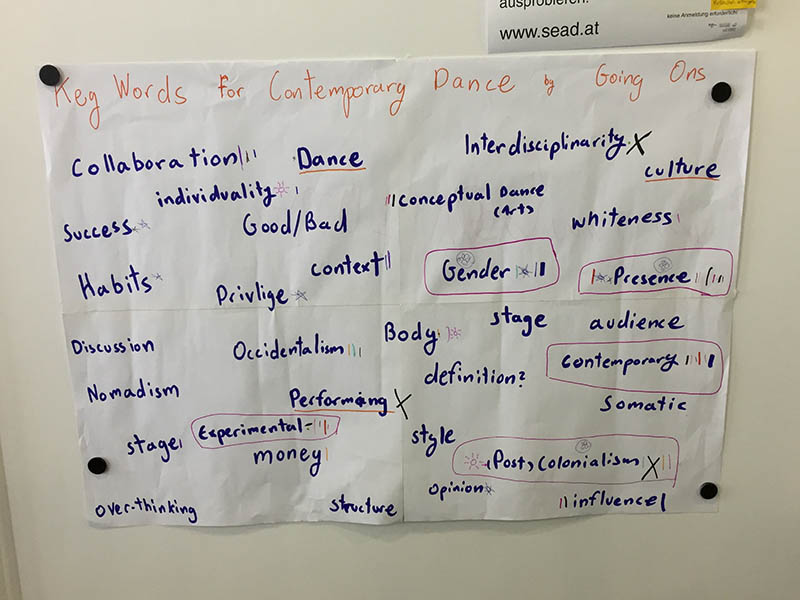 ausprobieren.
keine Anmeldung erforderlich!
www.sead.at
Key Words For Contemporary Dance by Going Ons
Collaboration
Dance
Interdisciplinarity
culture
individuality
Conceptual Dance
(Art)
whiteness
Success
Good/Bad
Habits
Privlige
context
Gender
Presence
Discussion
Occidentalism
Body
stage
audience
Contemporary
Nomadism
Performing
definition?
Somatic
stage
Experimental
money
style
(Post) Colonialism
Opinion
influence
over-thinking
structure